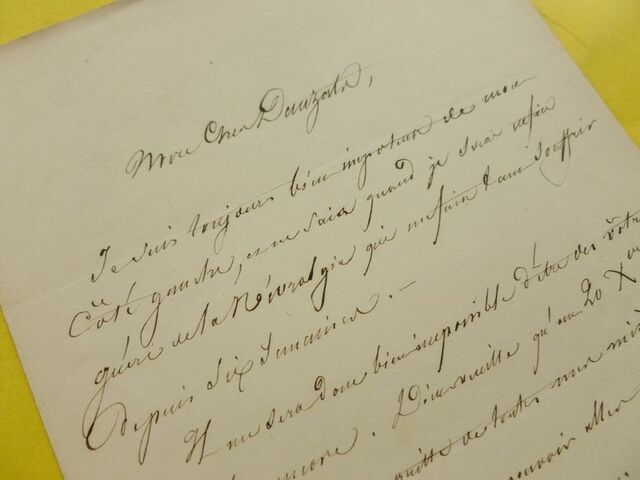 Mon Cher Dauzats,
Je suis toujours bien impotent de mon
Côté gauche, et ne sais quand je serai enfin
guéri de la Névralgie qui me fait tant souffrir
depuis six semaines. —
Il me sera donc bien impossible d'être des vôtres
encore. Dieu veuille qu'au 20 Xbre
quitte de toutes mes
pouvoir aller